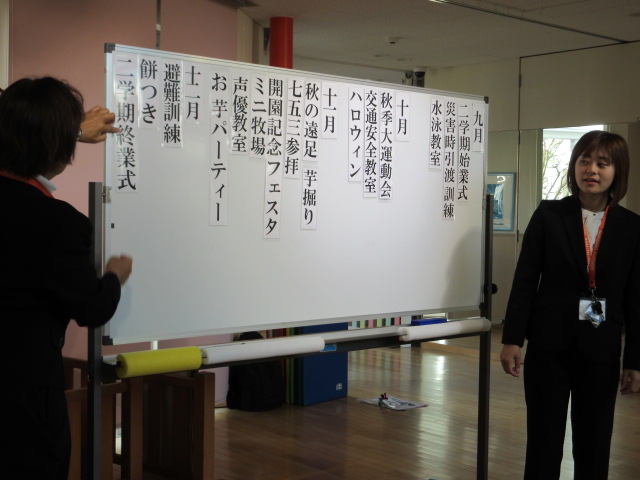 九月
二学期始業式
災害時引渡訓練
水泳教室
十月
秋季大運動会
交通安全教室
ハロウィン
十一月
秋の遠足 芋掘り
七五三参拝
開園記念フェスタ
ミニ牧場
声優教室
お芋パーティー
十二月
避難訓練
餅つき
二学期終業式